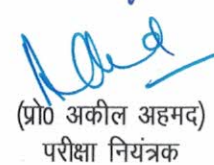 (प्रो0 अकील अहमद)
परीक्षा नियंत्रक